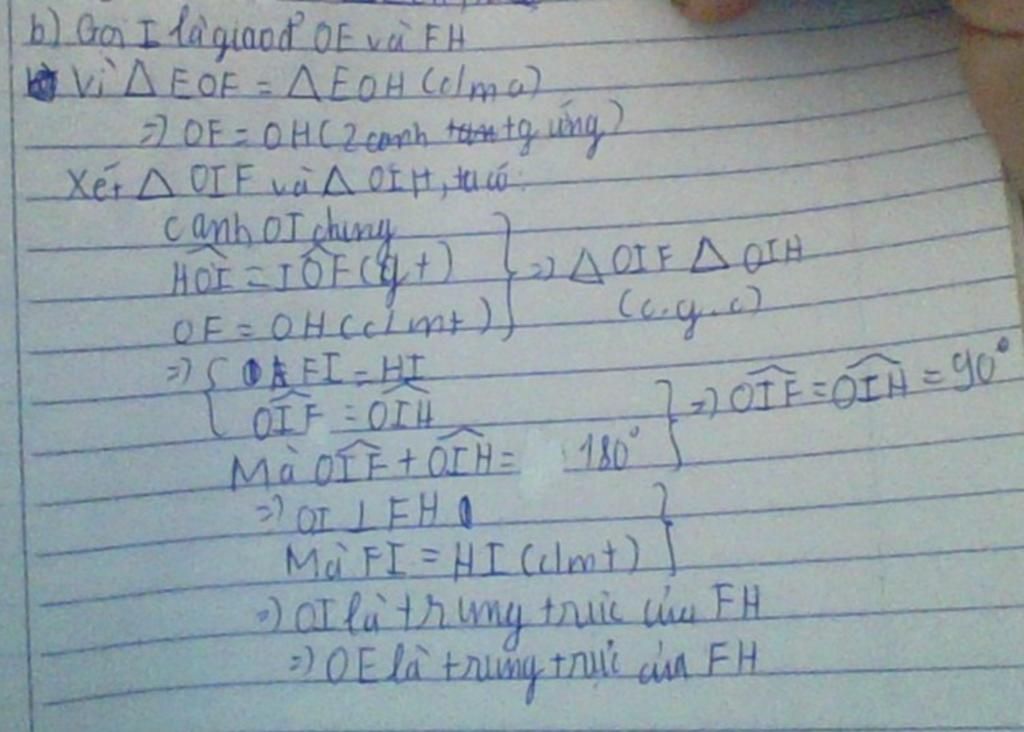 b) Gọi I là giaođ' OE và FH
Vì △EOF = △EOH (c/m a)
=> OF = OH (2 cạnh tg ứng)
Xét △ OIF và △ OIH, ta có:
cạnh OI chung
HOI = IOF (gt)
OF = OH (c/mt)
=> △ OIF △ OIH
(c.g.c)
=> { FI = HI
OIF = OIH
Mà OIF + OIH = 180°
=> OIF = OIH = 90°
=> OI ⊥ FH
Mà FI = HI (c/mt)
=> OI là trung trực của FH
=> OE là trung trực của FH